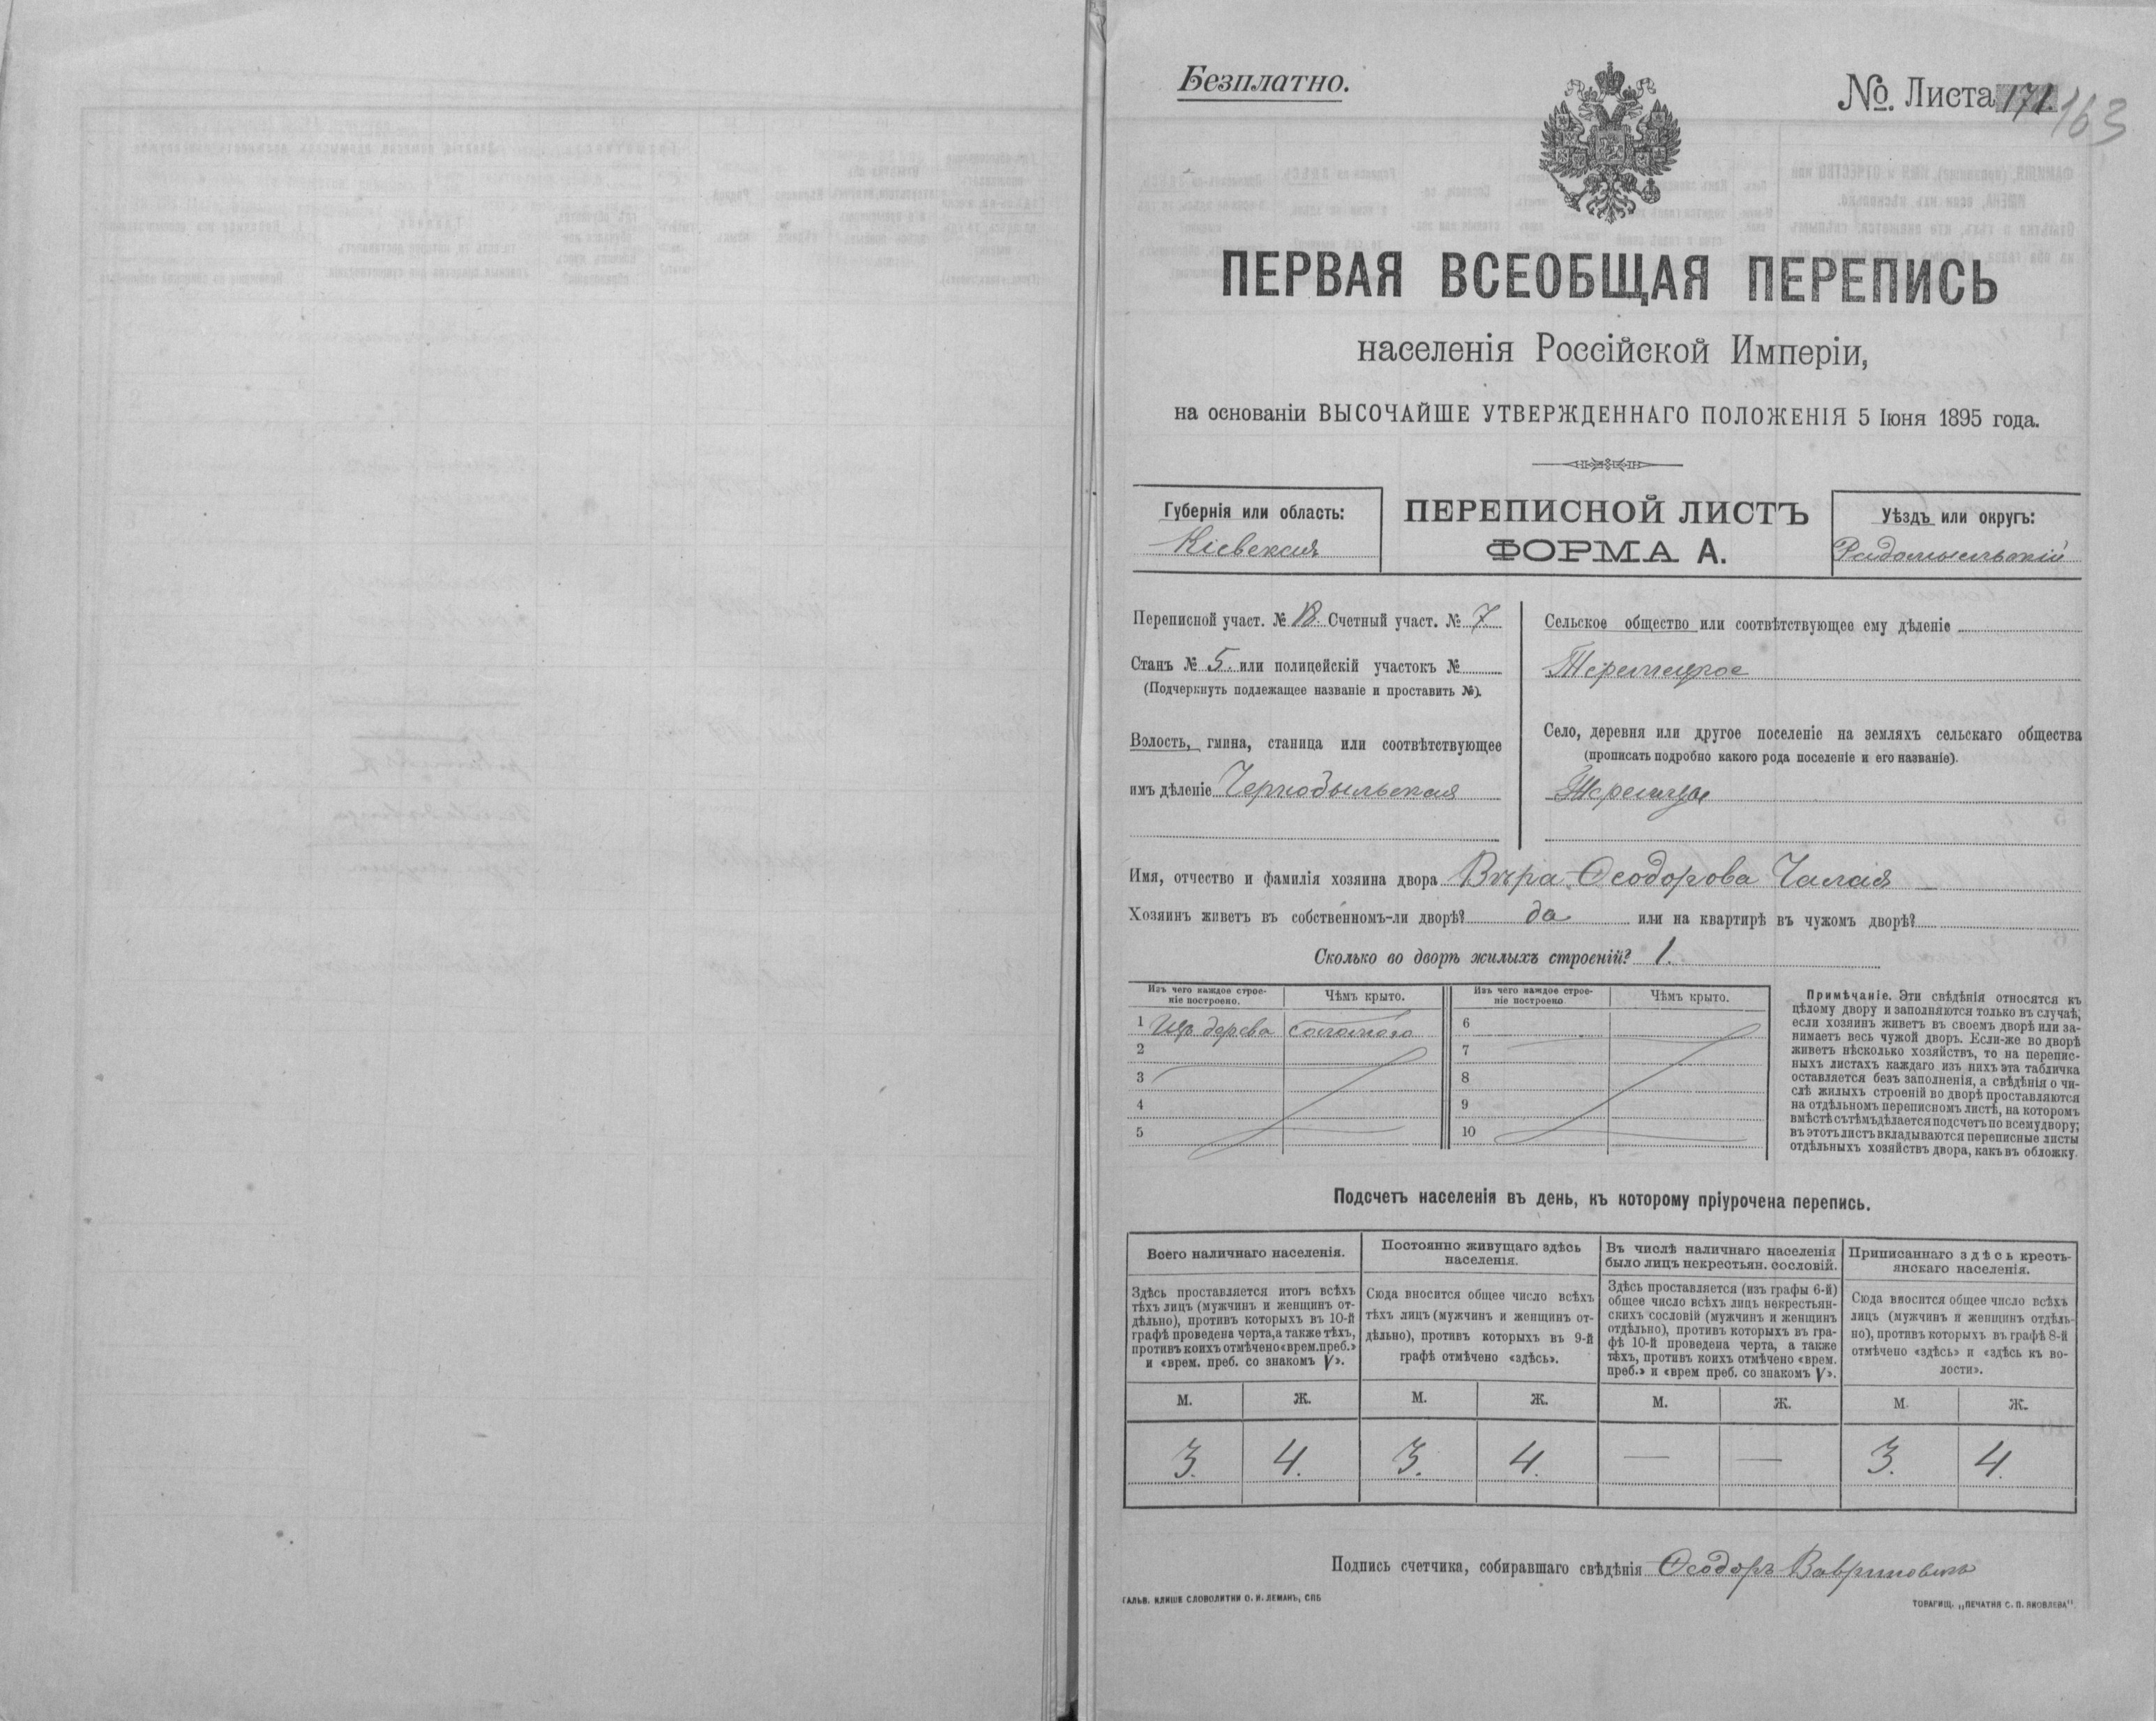 Безплатно.
№. Листа 171. 163
ПЕРВАЯ ВСЕОБЩАЯ ПЕРЕПИСЬ
населенія Россійской Имперіи,
на основаніи ВЫСОЧАЙШЕ УТВЕРЖДЕННАГО ПОЛОЖЕНІЯ 5 Іюня 1895 года.
Губернія или область:
Кіевская
ПЕРЕПИСНОЙ ЛИСТЪ
ФОРМА А.
Уѣздъ или округъ:
Радомысльскій
Переписной участ. № Счетный участ. № 7
Станъ № 5. или полицейскій участокъ №
(Подчеркнуть подлежащее названіе и проставить №).
Волость, гмина, станица или соотвѣтствующее
имъ дѣленіе Чернобыльская
Сельское общество или соотвѣтствующее ему дѣленіе
Теремецкое
Село, деревня или другое поселеніе на земляхъ сельскаго общества
(прописать подробно какого рода поселеніе и его названіе).
Теремцы
Имя, отчество и фамилія хозяина двора Вѣра Ѳеодорова Чалая
Хозяинъ живетъ въ собственномъ-ли дворѣ? да или на квартирѣ въ чужомъ дворѣ?
Сколько во дворѣ жилыхъ строеній? 1.
Изъ чего каждое строе-
ніе построено.
Чѣмъ крыто.
Изъ чего каждое строе-
ніе построено
Чѣмъ крыто.
1 Изъ дерева соломою 6
2 7
3 8
4 9
5 10
Примѣчаніе. Эти свѣдѣнія относятся къ
цѣлому двору и заполняются только въ случаѣ,
если хозяинъ живетъ въ своемъ дворѣ или за-
нимаетъ весь чужой дворъ. Если-же во дворѣ
живетъ нѣсколько хозяйствъ, то на перепис-
ныхъ листахъ каждаго изъ нихъ эта табличка
оставляется безъ заполненія, а свѣдѣнія о чи-
слѣ жилыхъ строеній во дворѣ проставляются
на отдѣльномъ переписномъ листѣ, на которомъ
вмѣстѣ съ тѣмъ дѣлается подсчетъ по всему двору;
въ этотъ листъ вкладываются переписные листы
отдѣльныхъ хозяйствъ двора, какъ въ обложку.
Подсчетъ населенія въ день, къ которому пріурочена перепись.
Всего наличнаго населенія.
Здѣсь проставляется итогъ всѣхъ
тѣхъ лицъ (мужчинъ и женщинъ от-
дѣльно), противъ которыхъ въ 10-й
графѣ проведена черта, а также тѣхъ,
противъ коихъ отмѣчено «врем. преб.»
и «врем. преб. со знакомъ V».
Постоянно живущаго здѣсь
населенія.
Сюда вносится общее число всѣхъ
тѣхъ лицъ (мужчинъ и женщинъ от-
дѣльно), противъ которыхъ въ 9-й
графѣ отмѣчено «здѣсь».
Въ числѣ наличнаго населенія
было лицъ некрестьян. сословій.
Здѣсь проставляется (изъ графы 6-й)
общее число всѣхъ лицъ некрестьян-
скихъ сословій (мужчинъ и женщинъ
отдѣльно), противъ которыхъ въ гра-
фѣ 10-й проведена черта, а также
тѣхъ, противъ коихъ отмѣчено «врем.
преб.» и «врем преб. со знакомъ V».
Приписаннаго здѣсь кресть-
янскаго населенія.
Сюда вносится общее число всѣхъ
лицъ (мужчинъ и женщинъ отдѣль-
но), противъ которыхъ въ графѣ 8-й
отмѣчено «здѣсь» и «здѣсь къ во-
лости».
М. Ж. М. Ж. М. Ж. М. Ж.
3. 4. 3. 4. — — 3. 4.
Подпись счетчика, собиравшаго свѣдѣнія Ѳеодоръ
ГАЛЬВ. КЛИШЕ СЛОВОЛИТНИ О. И. ЛЕМАНЪ, СПБ
ТОВАРИЩ. „ПЕЧАТНЯ С. П. ЯКОВЛЕВА"